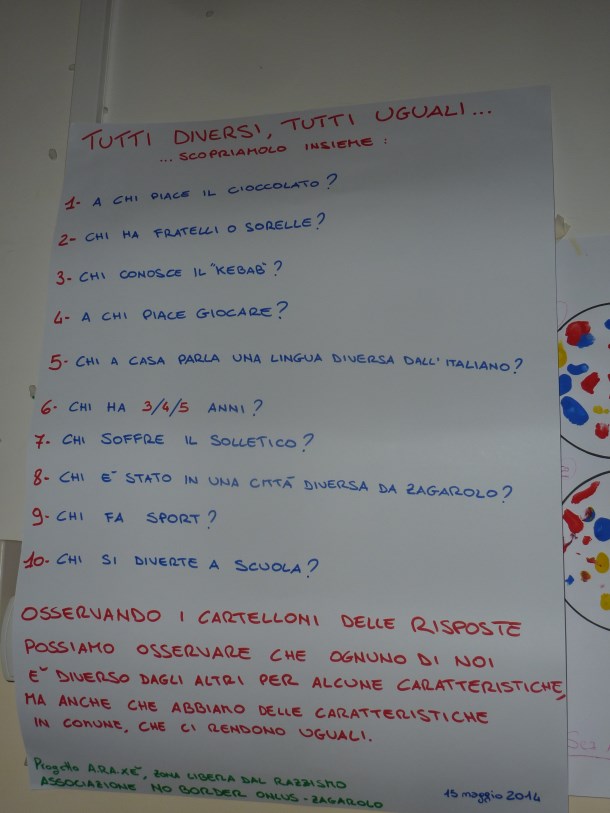 TUTTI DIVERSI, TUTTI UGUALI...
... SCOPRIAMOLO INSIEME :
1- A CHI PIACE IL CIOCCOLATO?
2- CHI HA FRATELLI O SORELLE?
3- CHI CONOSCE IL "KEBAB"?
4- A CHI PIACE GIOCARE?
5- CHI A CASA PARLA UNA LINGUA DIVERSA DALL'ITALIANO?
6- CHI HA 3/4/5 ANNI?
7- CHI SOFFRE IL SOLLETICO?
8- CHI E' STATO IN UNA CITTÀ DIVERSA DA ZAGAROLO?
9- CHI FA SPORT?
10- CHI SI DIVERTE A SCUOLA?
OSSERVANDO I CARTELLONI DELLE RISPOSTE
POSSIAMO OSSERVARE CHE OGNUNO DI NOI
E' DIVERSO DAGLI ALTRI PER ALCUNE CARATTERISTICHE,
MA ANCHE CHE ABBIAMO DELLE CARATTERISTICHE
IN COMUNE, CHE CI RENDONO UGUALI.
Progetto A.RA.XE', ZONA LIBERA DAL RAZZISMO
ASSOCIAZIONE NO BORDER ONLUS - ZAGAROLO
15 maggio 2014